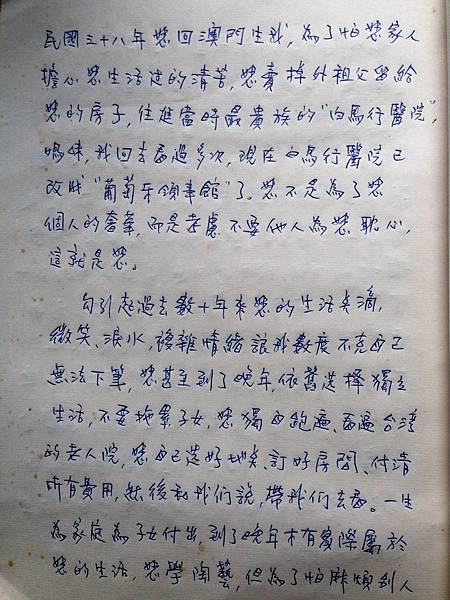 民國三十八年您回澳門生我,為了怕您家人
擔心您生活过的清苦,您賣掉外祖父留給
您的房子,住進當時最貴族的"白馬行醫院",
嗚妹,我回去看過多次,現在白馬行醫院已
改成"葡萄牙領事館"了。您不是為了您
個人的奢華,而是考慮不要他人為您耽心,
這就是您。
勾引起過去數十年來您的生活点滴,
微笑、淚水,複雜情緒讓我數度不克自已
無法下筆,您甚至到了晚年,依舊选择獨立
生活,不要拖累子女,您獨自跑遍、看遍台湾
的老人院,您自己选好地点、訂好房間、付清
所有費用,然後和我們說,帶我們去看。一生
為家庭為子女付出,到了晚年才有實際屬於
您的生活,您學陶藝,但為了怕麻煩別人